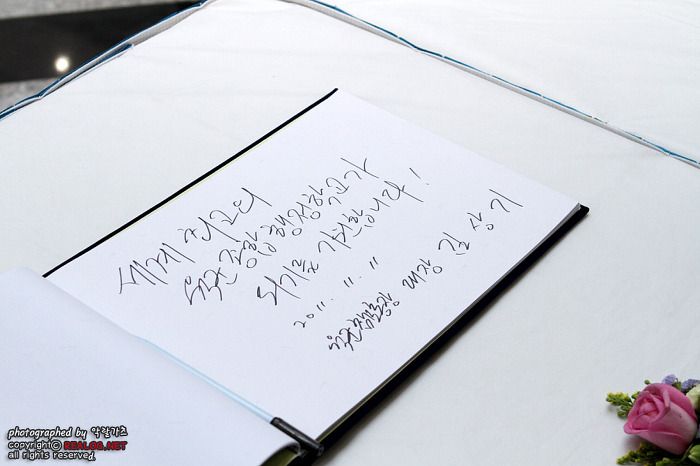 세계 최고의
육군종합행정학교가
되기를 기원합니다!
2011. 11. 11
육군참모총장 대장 김 상 기
photographed by 악랄가츠
copyrightⓒ REALOG.NET
all rights reserved.